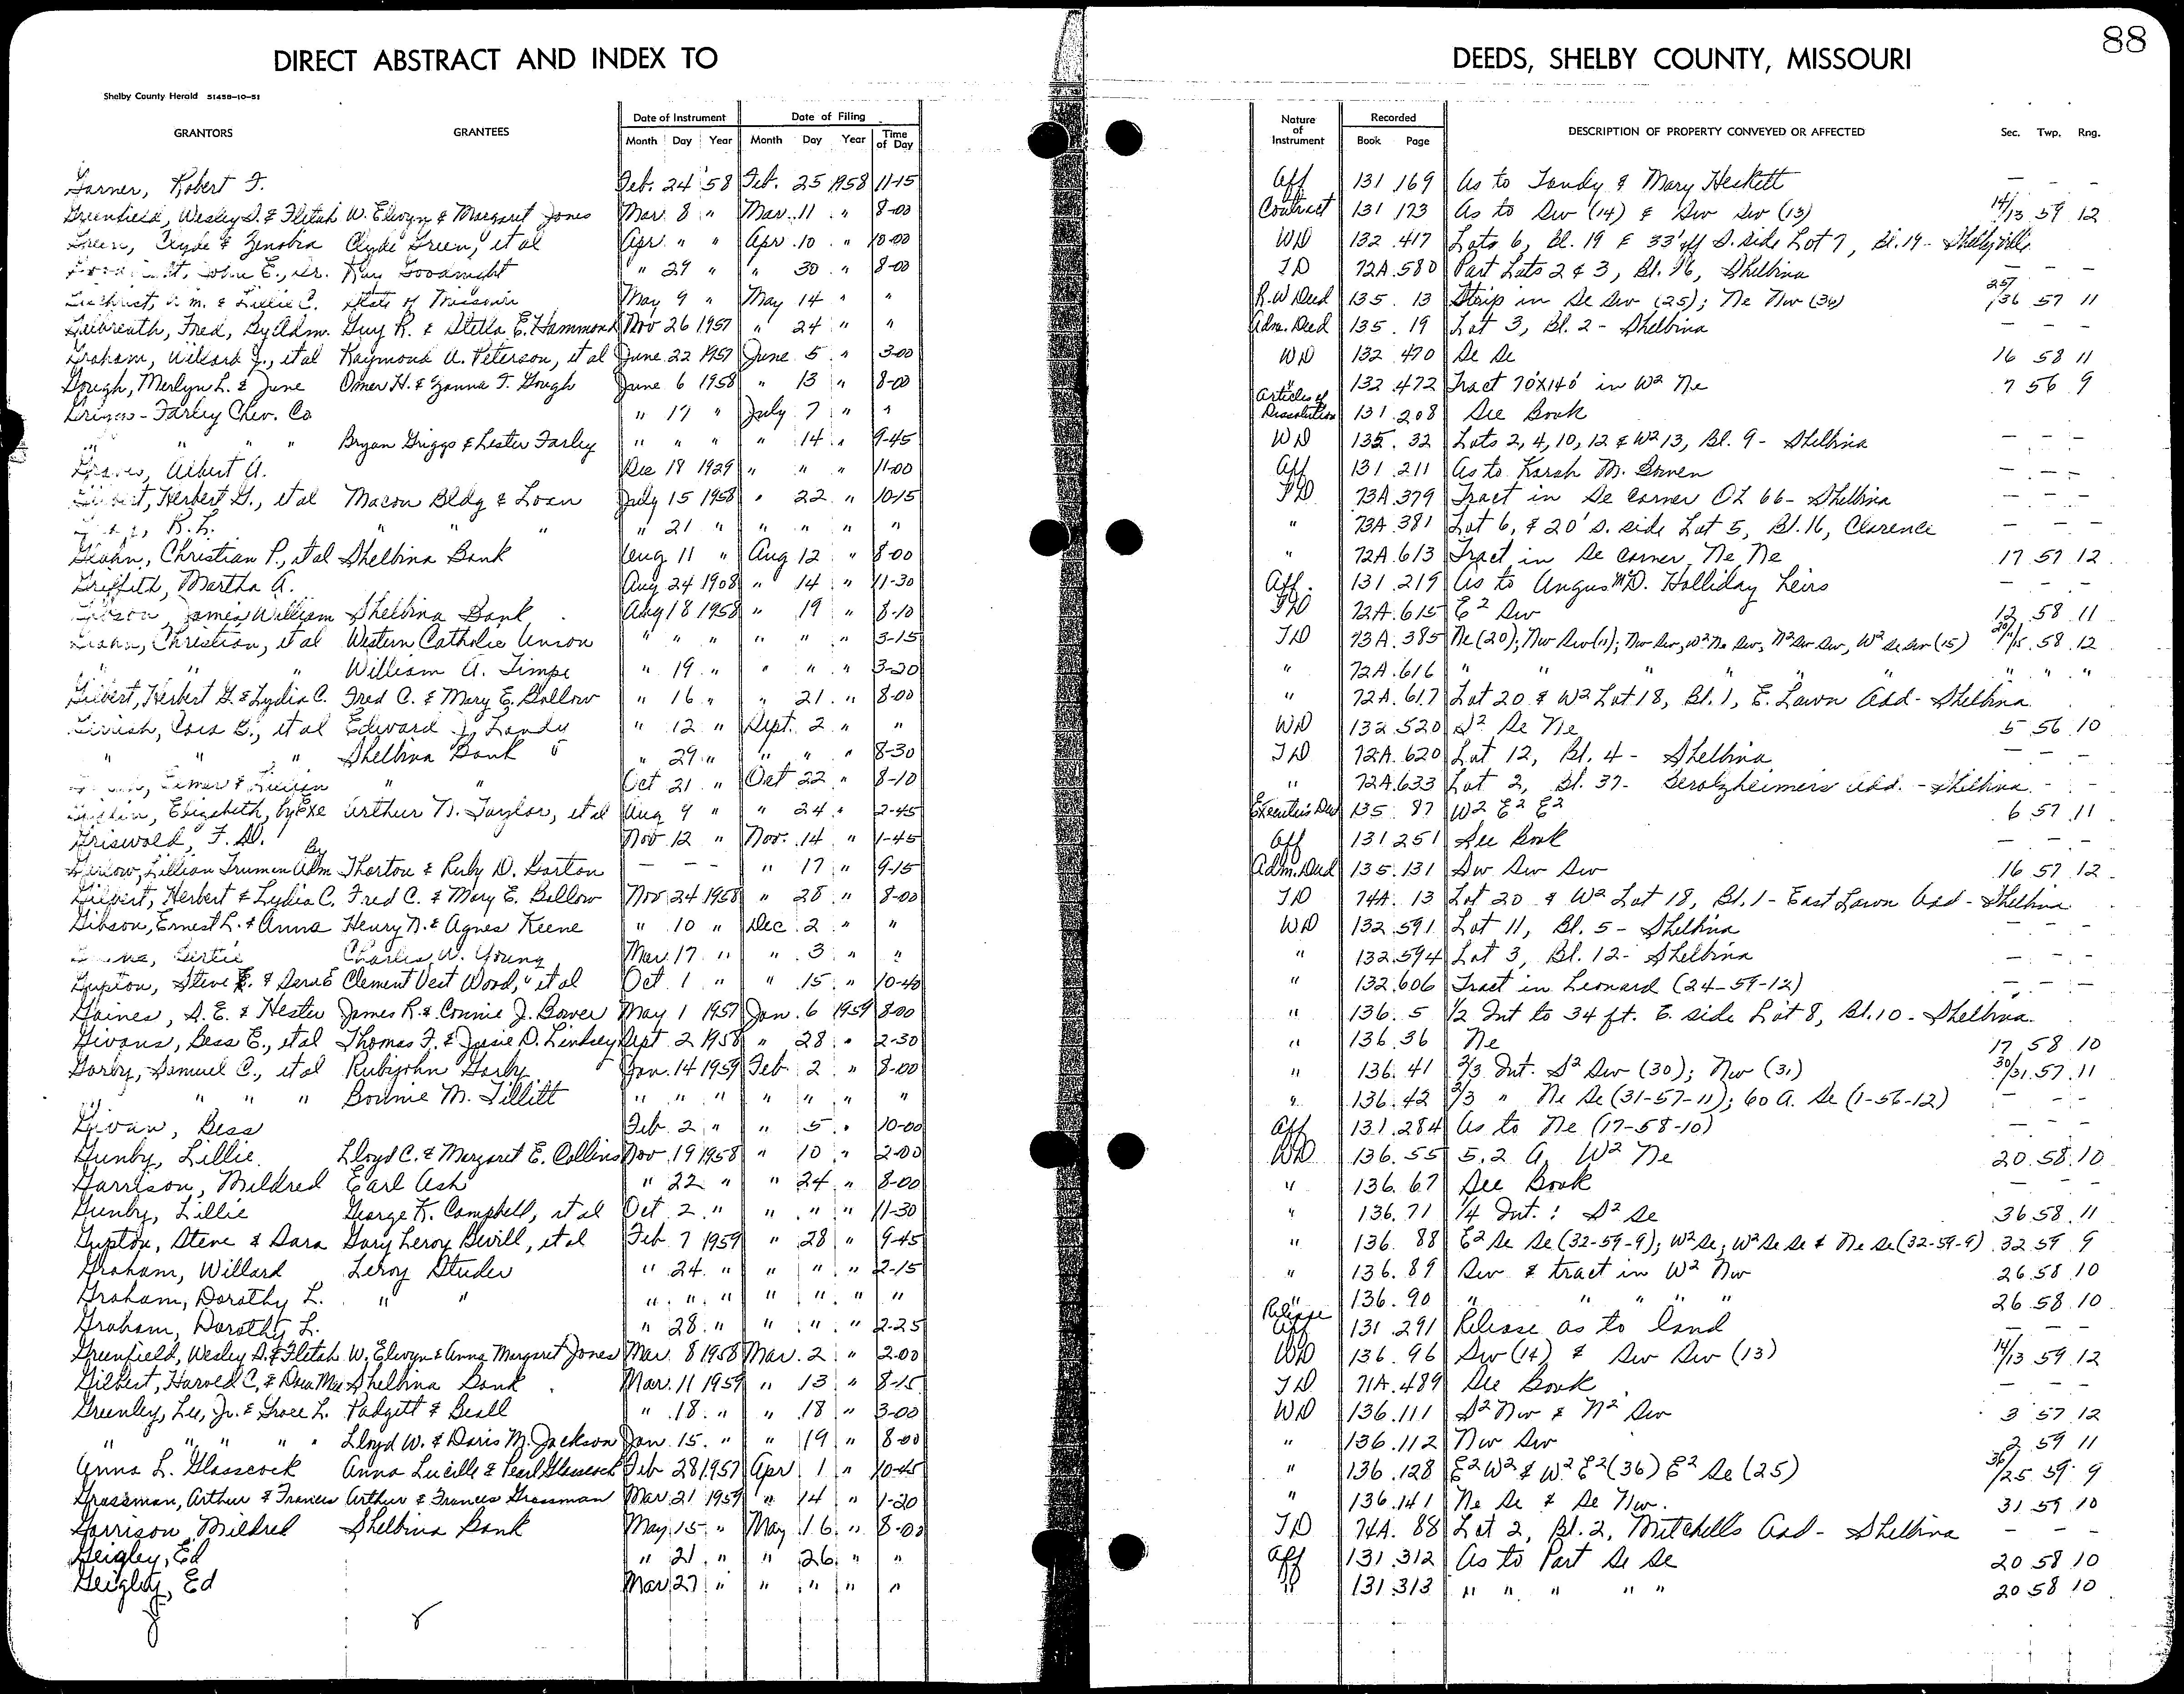 88
DIRECT ABSTRACT AND INDEX TO DEEDS, SHELBY COUNTY, MISSOURI
Shelby County Herald 51458-10-51
GRANTORS GRANTEES Date of Instrument Date of Filing Nature of Instrument Recorded DESCRIPTION OF PROPERTY CONVEYED OR AFFECTED Sec. Twp. Rng.
Month Day Year Month Day Year Time of Day Book Page
Garner, Robert F. Feb. 24 '58 Feb. 25 1958 11-15 Aff 131 169 As to Tandy & Mary Heskett — — —
Greenfield, Wesley D. & Fletah W. Elwyn & Margaret Jones Mar. 8 " Mar. 11 " 8-00 Contract 131 173 As to Sw (14) & Sw Sw (13) 14/13 59 12
Green, Clyde & Zenobia Clyde Green, et al Apr. " " Apr. 10 " 10-00 WD 132 417 Lots 6, Bl. 19 & 33' off S. side Lot 7, Bl. 19 - Shelbyville
John E., Sr. Ray Goodnight " 29 " " 30 " 8-00 TD 72A 580 Part Lots 2 & 3, Bl. 16, Shelbina — — —
& Lillie C. State of Missouri May 9 " May 14 " " R.W Deed 135 13 Strip in Se Sw (25); Ne Nw (36) 25/36 57 11
Galbreath, Fred, By Adm. Guy R. & Stella E. Hammond Nov 26 1957 " 24 " " Adm. Deed 135 19 Lot 3, Bl. 2 - Shelbina — — —
Graham, Willard J., et al Raymond A. Peterson, et al June 22 1957 June 5 " 3-00 WD 132 470 Se Se 16 58 11
Gough, Merlyn L. & June Omer H. & Zanna T. Gough June 6 1958 " 13 " 8-00 " 132 472 Tract 70'X140' in W² Ne 7 56 9
Griggs-Farley Chev. Co " 17 " July 7 " " Articles of Dissolution 131 208 See Book
" " " " Bryan Griggs & Lester Farley " " " " 14 " 9-45 WD 135 32 Lots 2, 4, 10, 12 & W² 13, Bl. 9 - Shelbina — — —
Graves, Albert A. Dec 18 1929 " " " 11-00 Aff 131 211 As to Karah M. — — —
Herbert G., et al Macon Bldg & Loan July 15 1958 " 22 " 10-15 TD 73A 379 Tract in Se corner OL 66 - Shelbina — — —
R. L. " " " " 21 " " " " " " 73A 381 Lot 6, & 20' S. side Lot 5, Bl. 16, Clarence — — —
Christian P., et al Shelbina Bank Aug 11 " Aug 12 " 8-00 " 72A 613 Tract in Se corner Ne Ne 17 57 12
Griffith, Martha A. Aug 24 1908 " 14 " 11-30 Aff. 131 219 As to Angus McD. Holliday heirs — — —
Gibson, James William Shelbina Bank Aug 18 1958 " 19 " 8-10 TD 72A 615 E² Sw 12 58 11
Christian, et al Western Catholic Union " " " " " " 3-15 TD 73A 385 Ne (20); Nw Sw (11); Nw Sw, W² Ne Sw, N² Sw Sw, W² Se Sw (15) 58 12
" " William A. Timpe " 19 " " " " 3-20 " 72A 616 " " " " " " " "
Gilbert, Herbert G. & Lydia C. Fred C. & Mary E. Ballow " 16 " " 21 " 8-00 " 72A 617 Lot 20 & W² Lot 18, Bl. 1, E. Lawn Add - Shelbina
Cora B., et al Edward J. Landy " 12 " Sept. 2 " " WD 132 520 S² Se Ne 5 56 10
" " " Shelbina Bank " 29 " " " " 8-30 TD 72A 620 Lot 12, Bl. 4 - Shelbina — — —
Elmer & " " Oct 21 " Oct 22 " 8-10 " 72A 633 Lot 2, Bl. 37 - Gerolzheimers Add. - Shelbina — —
Elizabeth, by Exe Arthur N. Taylor, et al Aug 9 " " 24 " 2-45 Executor's Deed 135 87 W² E² E² 6 57 11
Griswold, F. D. Nov 12 " Nov. 14 " 1-45 Aff 131 251 See Book — — —
Lillian Trumen By Adm Thorton & Ruby D. Barton — — — " 17 " 9-15 Adm. Deed 135 131 Sw Sw Sw 16 57 12
Gilbert, Herbert & Lydia C. Fred C. & Mary E. Ballow Nov 24 1958 " 28 " 8-00 TD 74A 13 Lot 20 & W² Lot 18, Bl. 1 - East Lawn Add - Shelbina
Gibson, Ernest L. & Anna Henry N. & Agnes Keene " 10 " Dec. 2 " " WD 132 591 Lot 11, Bl. 5 - Shelbina — — —
Gertie Charles W. Young Mar. 17 " " 3 " " " 132 594 Lot 3, Bl. 12 - Shelbina — — —
Gupton, Steve E. & Clement Vest Wood, et al Oct 1 " " 15 " 10-40 " 132 606 Tract in Leonard (24-59-12) — — —
Gaines, S. E. & Hester James R. & Connie J. Bower May 1 1957 Jan. 6 1959 8-00 " 136 5 1/2 Int to 34 ft. E. side Lot 8, Bl. 10 - Shelbina
Givans, Bess E., et al Thomas F. & Josie D. Lindsey Sept 2 1958 " 28 " 2-30 " 136 36 Ne 17 58 10
Gorby, Samuel C., et al Rubyjohn Gorby Jan. 14 1959 Feb 2 " 8-00 " 136 41 2/3 Int. S² Sw (30); Nw (31) 30/31 57 11
" " " " Bonnie M. Tillitt " " " " " " " " 136 42 2/3 " Ne Se (31-57-11); 60 A. Se (1-56-12) — — —
Givan, Bess Feb. 2 " " 5 " 10-00 Aff 131 284 As to Ne (17-58-10) — — —
Gunby, Lillie Lloyd C. & Margaret E. Collins Nov. 19 1958 " 10 " 2-00 WD 136 55 5.2 A. W² Ne 20 58 10
Garrison, Mildred Earl Ash " 22 " " 24 " 8-00 " 136 67 See Book — — —
Gunby, Lillie George K. Campbell, et al Oct 2 " " " " 11-30 " 136 71 1/4 Int.: S² Se 36 58 11
Gupton, Steve & Sara Gary Leroy Bevill, et al Feb 7 1959 " 28 " 9-45 " 136 88 E² Se Se (32-59-9); W² Se; W² Se Se & Ne Se (32-59-9) 32 59 9
Graham, Willard Leroy Studer " 24 " " " " 2-15 " 136 89 Sw & tract in W² Nw 26 58 10
Graham, Dorothy L. " " " " " " " " " " 136 90 " " " " " 26 58 10
Graham, Dorothy L. " 28 " " " " 2-25 Release Aff 131 291 Release as to land — — —
Greenfield, Wesley D. & Fletah W. Elwyn & Anna Margaret Jones Mar 8 1958 Mar. 2 " 2-00 WD 136 96 Sw (14) & Sw Sw (13) 14/13 59 12
Gilbert, Harold C, & Dora Mae Shelbina Bank Mar. 11 1959 " 13 " 8-15 TD 71A 489 See Book — — —
Greenley, Lee, Jr. & Grace L. Padgett & Beall " 18 " " 18 " 3-00 WD 136 111 S² Nw & N² Sw 3 57 12
" " " " " Lloyd W. & Doris M. Jackson Jan. 15 " " 19 " 8-00 " 136 112 Nw Sw 2 59 11
Anna L. Glasscock Anna Lucille & Pearl Glasscock Feb 28 1957 Apr 1 " 10-45 " 136 128 E² W² & W² E² (36) E² Se (25) 36/25 59 9
Grossman, Arthur & Frances Arthur & Frances Grossman Mar 21 1959 " 14 " 1-20 " 136 141 Ne Se & Se Nw. 31 59 10
Garrison, Mildred Shelbina Bank May 15 " May 16 " 8-00 TD 74A 88 Lot 2, Bl. 2, Mitchells Add - Shelbina — — —
Geigley, Ed " 21 " " 26 " " Aff 131 312 As to Part Se Se 20 58 10
Geigley, Ed Mar 27 " " " " " " 131 313 " " " " " 20 58 10